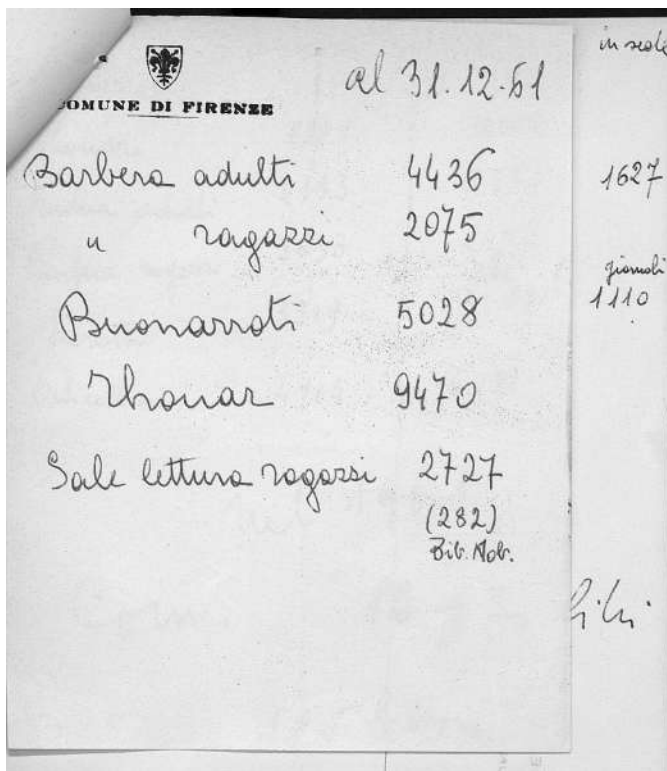 COMUNE DI FIRENZE
al 31.12.61
Barbera adulti 4436
" ragazzi 2075
Buonarroti 5028
Thouar 9470
Sale lettura ragazzi 2727
(282)
Bib. Mob.
in sede
1627
giornali
1110